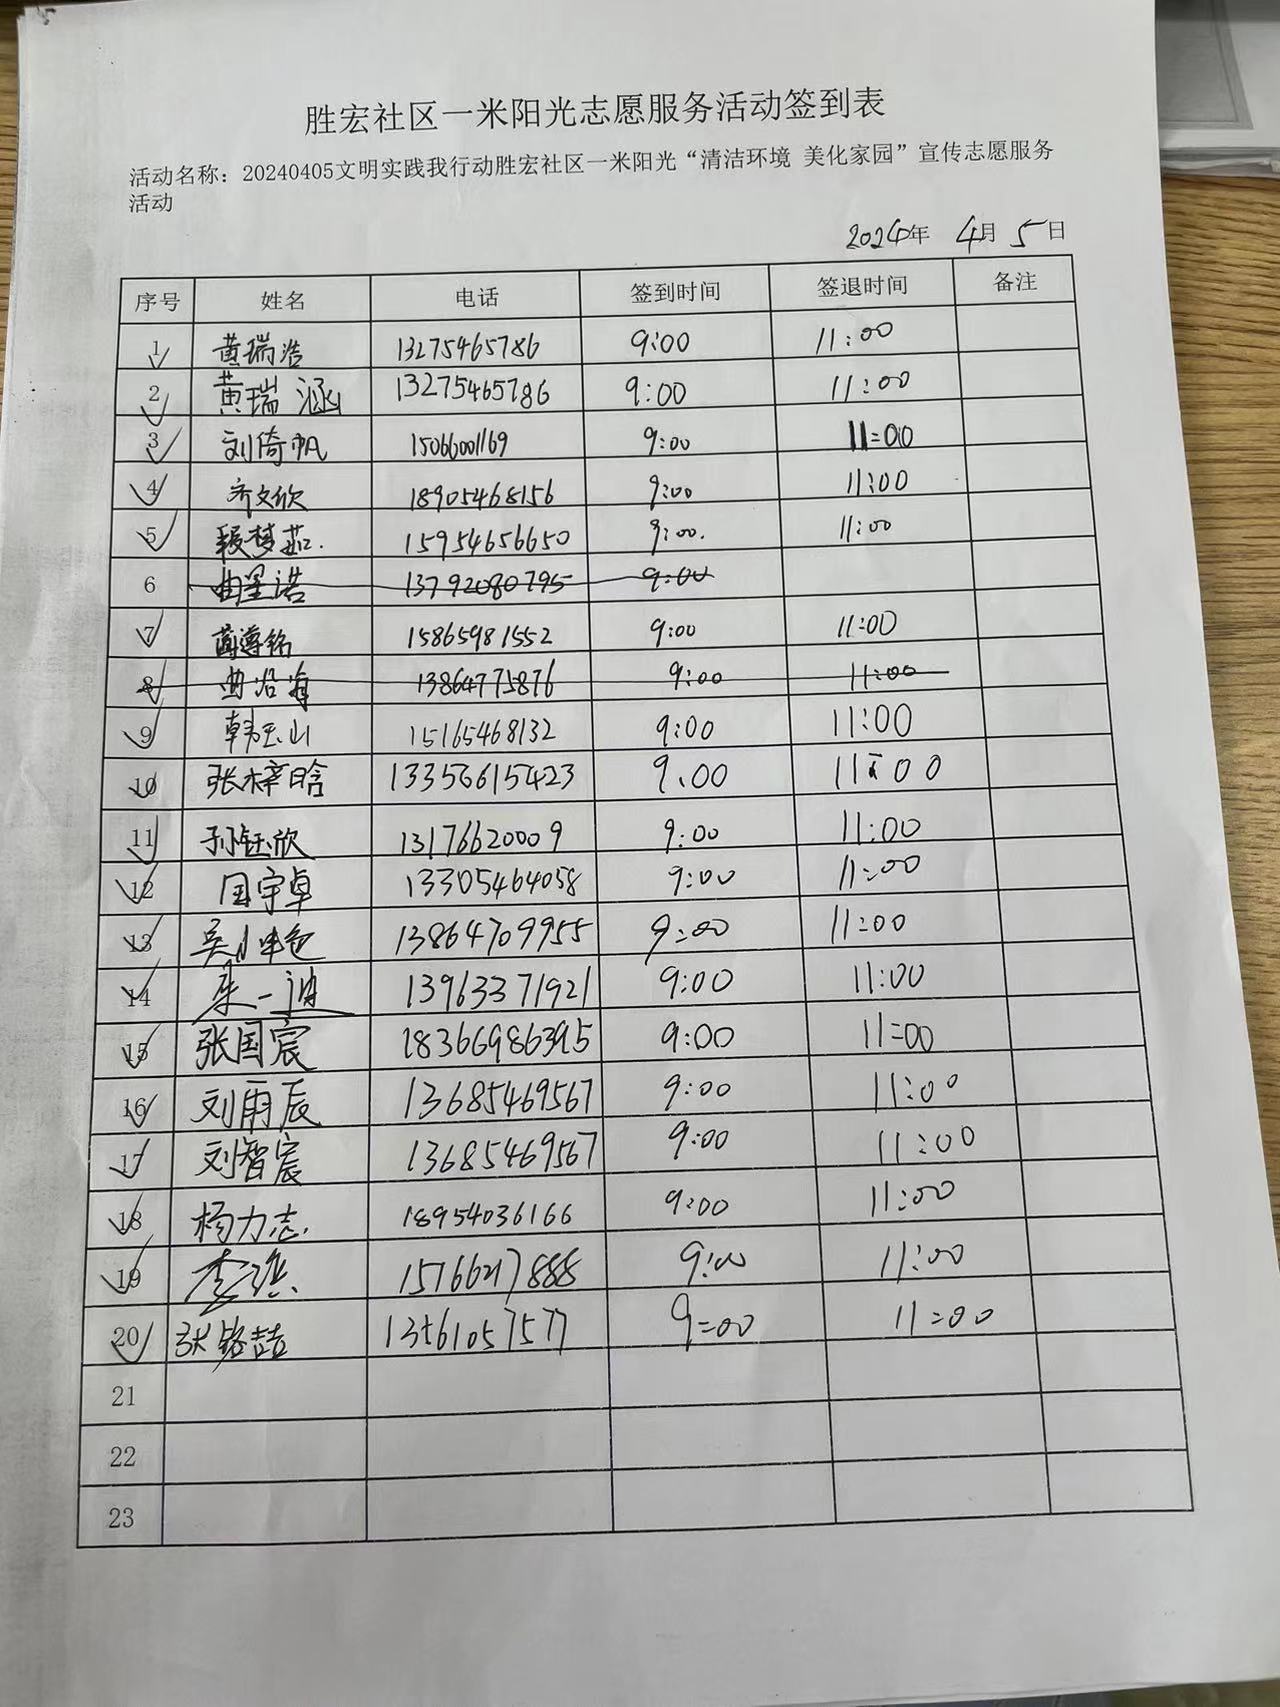 胜宏社区一米阳光志愿服务活动签到表
活动名称：20240405文明实践我行动胜宏社区一米阳光“清洁环境 美化家园”宣传志愿服务
活动
2024年 4月 5日
序号 姓名 电话 签到时间 签退时间 备注
1 黄瑞浩 13275465786 9:00 11:00
2 黄瑞涵 13275465786 9:00 11:00
3 刘倚帆 15066001169 9:00 11:00
4 齐文欣 18905468156 9:00 11:00
5 15954656650 9:00. 11:00
6 曲星诺 13792080795 9:00
7 15865981552 9:00 11:00
8 曲沿海 13864775876 9:00 11:00
9 韩玉山 15165468132 9:00 11:00
10 张梓晗 13356615423 9:00 11:00
11 孙钰欣 13176620009 9:00 11:00
12 国宇卓 13305464058 9:00 11:00
13 13864709955 9:00 11:00
14 13963371921 9:00 11:00
15 张国宸 18366986395 9:00 11:00
16 刘雨辰 13685469567 9:00 11:00
17 刘智宸 13685469567 9:00 11:00
18 杨力志. 18954036166 9:00 11:00
19 9:00 11:00
20 13561057577 9:00 11:00
21
22
23